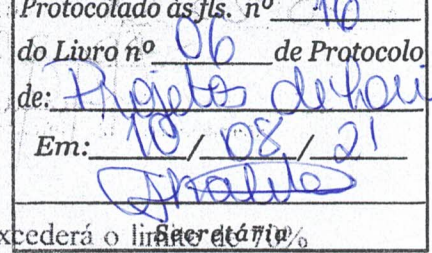 Protocolado às fls. nº 16
do Livro nº 06 de Protocolo
de: Projetos de Lei
Em: 10/08/21
Secretária
xcederá o limite de 70%